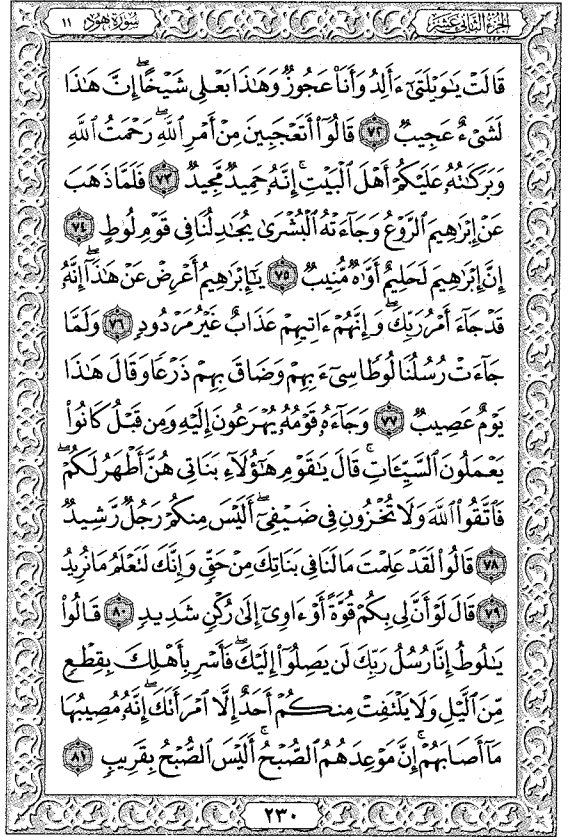 سُورَةُ هُودٍ ١١
الجُزْءُ الثَّانِي عَشَرَ
قَالَتْ يَٰوَيْلَتَىٰٓ ءَأَلِدُ وَأَنَا۠ عَجُوزٌ وَهَٰذَا بَعْلِى شَيْخًا ۖ إِنَّ هَٰذَا
لَشَىْءٌ عَجِيبٌ ٧٢ قَالُوٓا۟ أَتَعْجَبِينَ مِنْ أَمْرِ ٱللَّهِ ۖ رَحْمَتُ ٱللَّهِ
وَبَرَكَٰتُهُۥ عَلَيْكُمْ أَهْلَ ٱلْبَيْتِ ۚ إِنَّهُۥ حَمِيدٌ مَّجِيدٌ ٧٣ فَلَمَّا ذَهَبَ
عَنْ إِبْرَٰهِيمَ ٱلرَّوْعُ وَجَآءَتْهُ ٱلْبُشْرَىٰ يُجَٰدِلُنَا فِى قَوْمِ لُوطٍ ٧٤
إِنَّ إِبْرَٰهِيمَ لَحَلِيمٌ أَوَّٰهٌ مُّنِيبٌ ٧٥ يَٰٓإِبْرَٰهِيمُ أَعْرِضْ عَنْ هَٰذَآ ۖ إِنَّهُۥ
قَدْ جَآءَ أَمْرُ رَبِّكَ ۖ وَإِنَّهُمْ ءَاتِيهِمْ عَذَابٌ غَيْرُ مَرْدُودٍ ٧٦ وَلَمَّا
جَآءَتْ رُسُلُنَا لُوطًا سِىٓءَ بِهِمْ وَضَاقَ بِهِمْ ذَرْعًا وَقَالَ هَٰذَا
يَوْمٌ عَصِيبٌ ٧٧ وَجَآءَهُۥ قَوْمُهُۥ يُهْرَعُونَ إِلَيْهِ وَمِن قَبْلُ كَانُوا۟
يَعْمَلُونَ ٱلسَّيِّـَٔاتِ ۚ قَالَ يَٰقَوْمِ هَٰٓؤُلَآءِ بَنَاتِى هُنَّ أَطْهَرُ لَكُمْ ۖ
فَٱتَّقُوا۟ ٱللَّهَ وَلَا تُخْزُونِ فِى ضَيْفِىٓ ۖ أَلَيْسَ مِنكُمْ رَجُلٌ رَّشِيدٌ
٧٨ قَالُوا۟ لَقَدْ عَلِمْتَ مَا لَنَا فِى بَنَاتِكَ مِنْ حَقٍّ وَإِنَّكَ لَتَعْلَمُ مَا نُرِيدُ
٧٩ قَالَ لَوْ أَنَّ لِى بِكُمْ قُوَّةً أَوْ ءَاوِىٓ إِلَىٰ رُكْنٍ شَدِيدٍ ٨٠ قَالُوا۟
يَٰلُوطُ إِنَّا رُسُلُ رَبِّكَ لَن يَصِلُوٓا۟ إِلَيْكَ ۖ فَأَسْرِ بِأَهْلِكَ بِقِطْعٍ
مِّنَ ٱلَّيْلِ وَلَا يَلْتَفِتْ مِنكُمْ أَحَدٌ إِلَّا ٱمْرَأَتَكَ ۖ إِنَّهُۥ مُصِيبُهَا
مَآ أَصَابَهُمْ ۚ إِنَّ مَوْعِدَهُمُ ٱلصُّبْحُ ۚ أَلَيْسَ ٱلصُّبْحُ بِقَرِيبٍ ٨١
٢٣٠